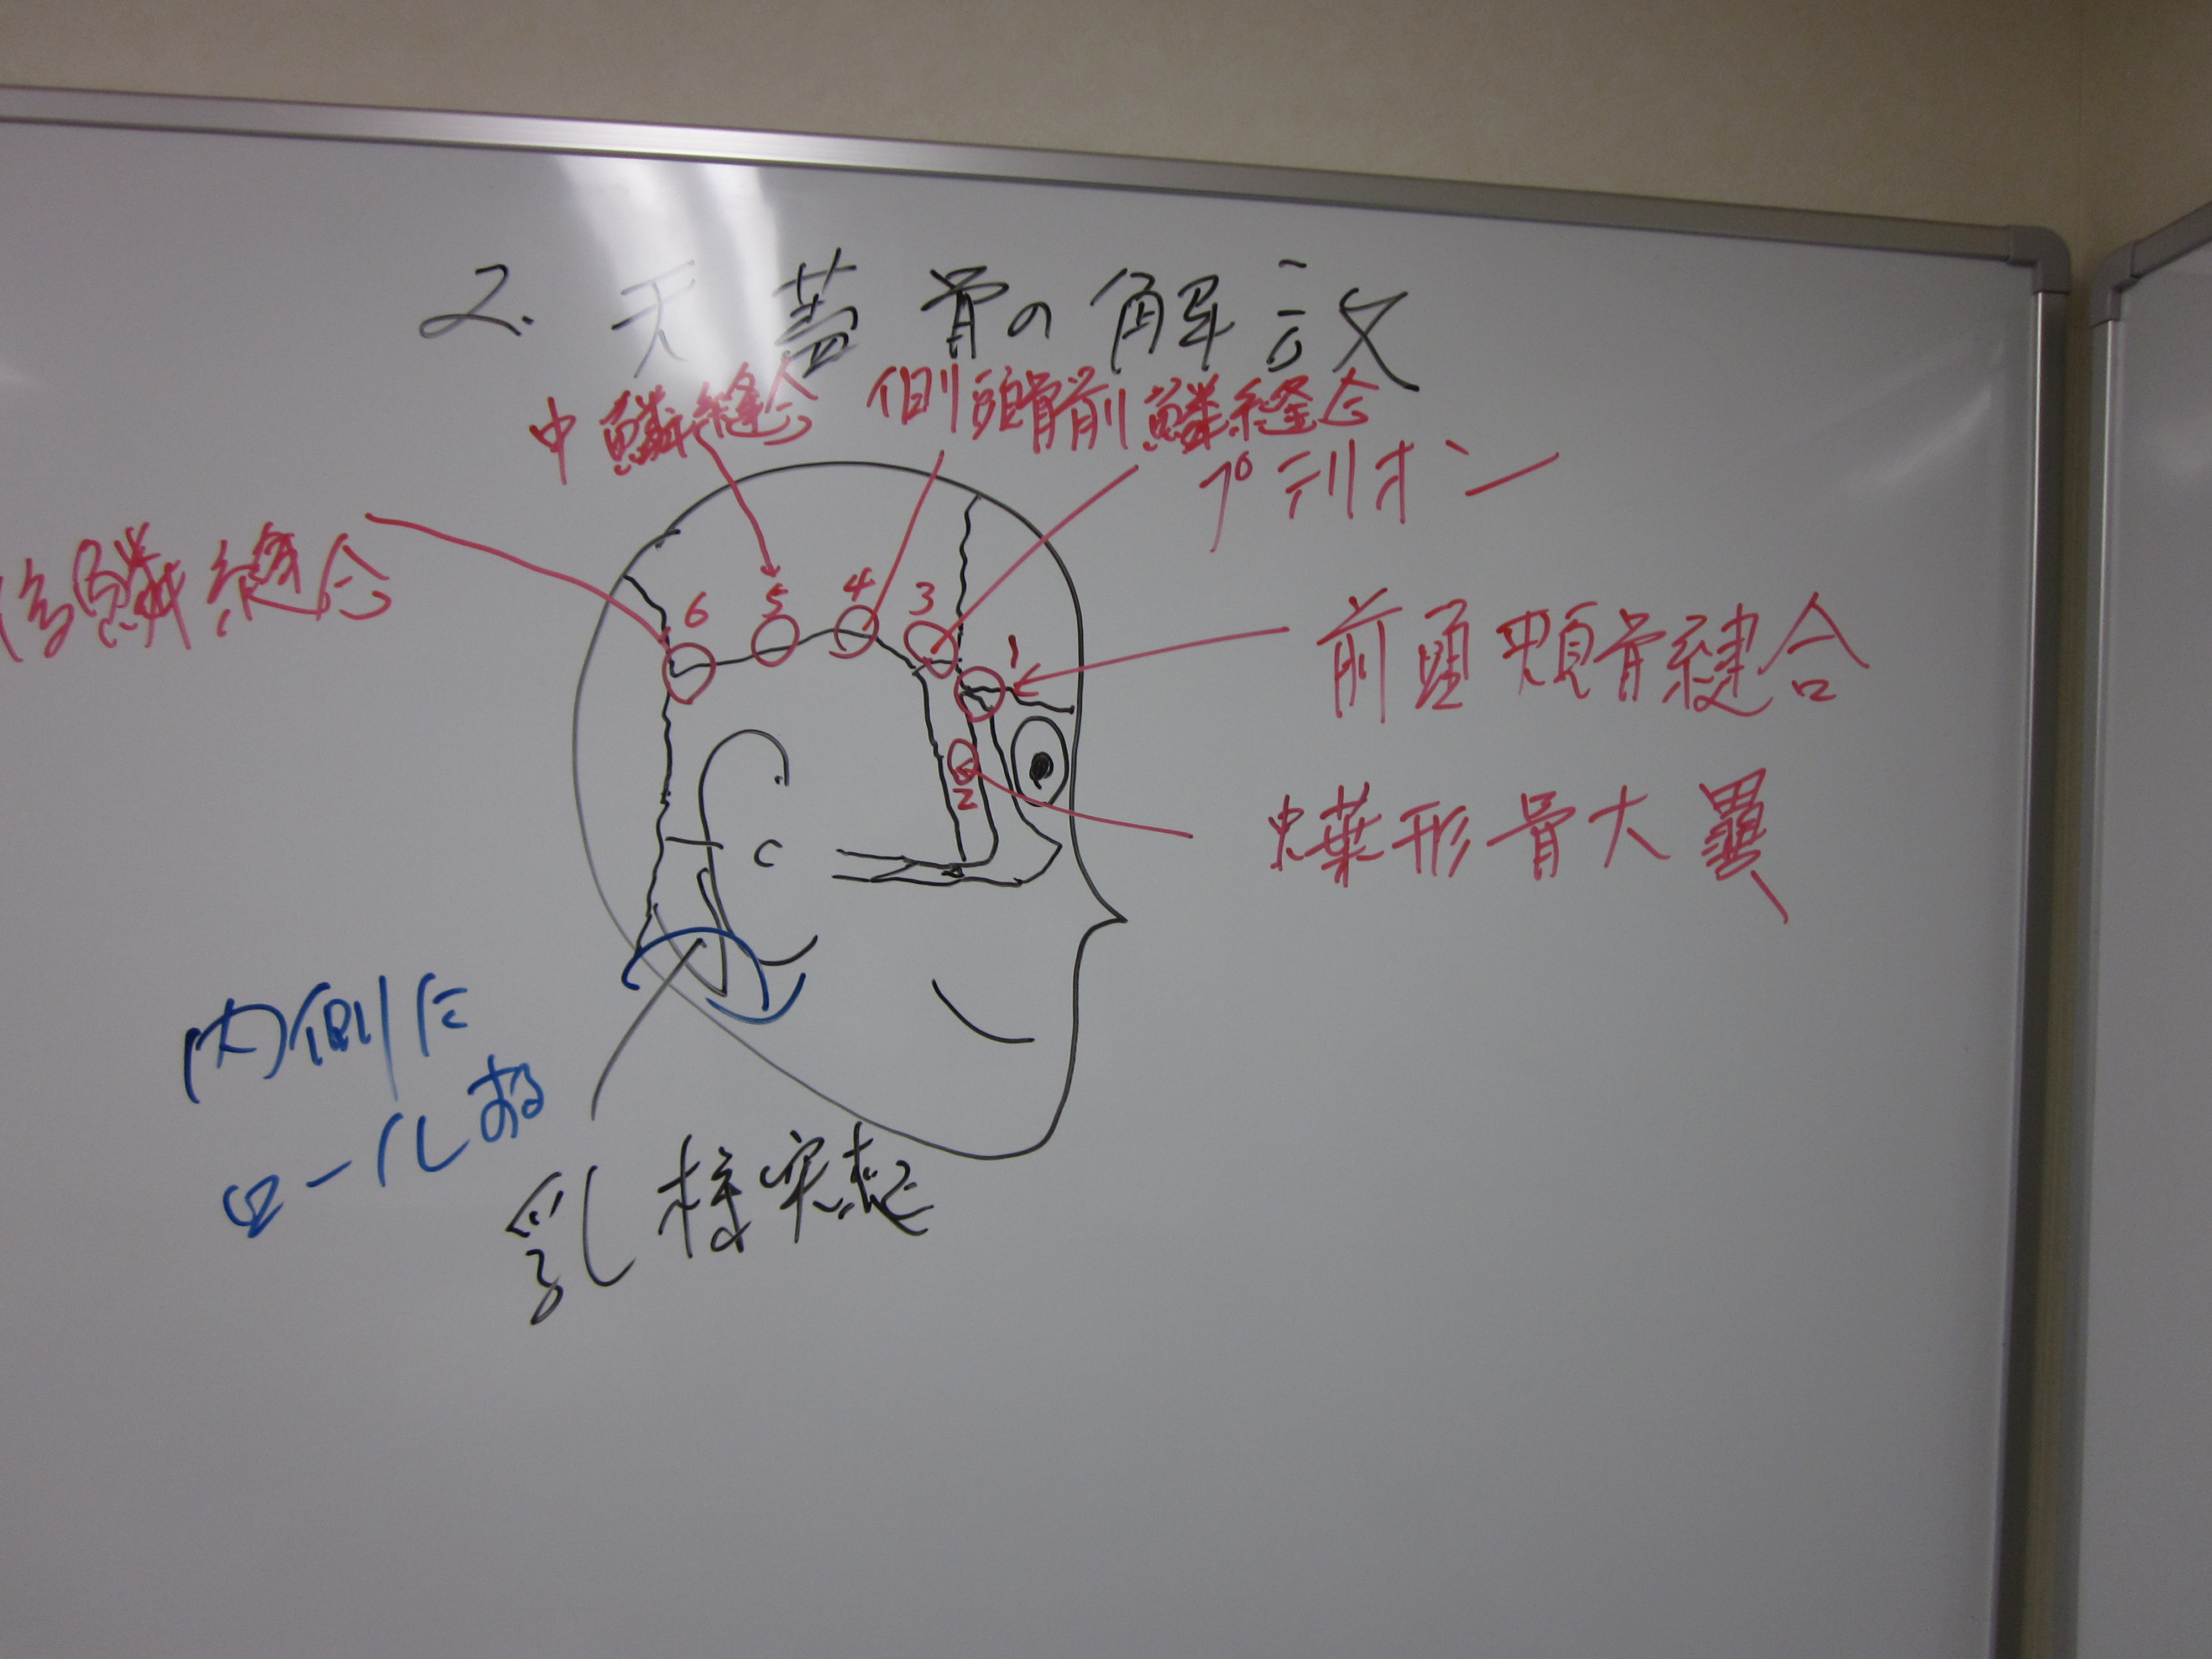 2. 天蓋骨の解説
中鱗縫合
側頭骨前鱗縫合
プテリオン
後鱗縫合
6
5
4
3
1
前頭頬骨縫合
2
蝶形骨大翼
内側に
ロールする
乳様突起